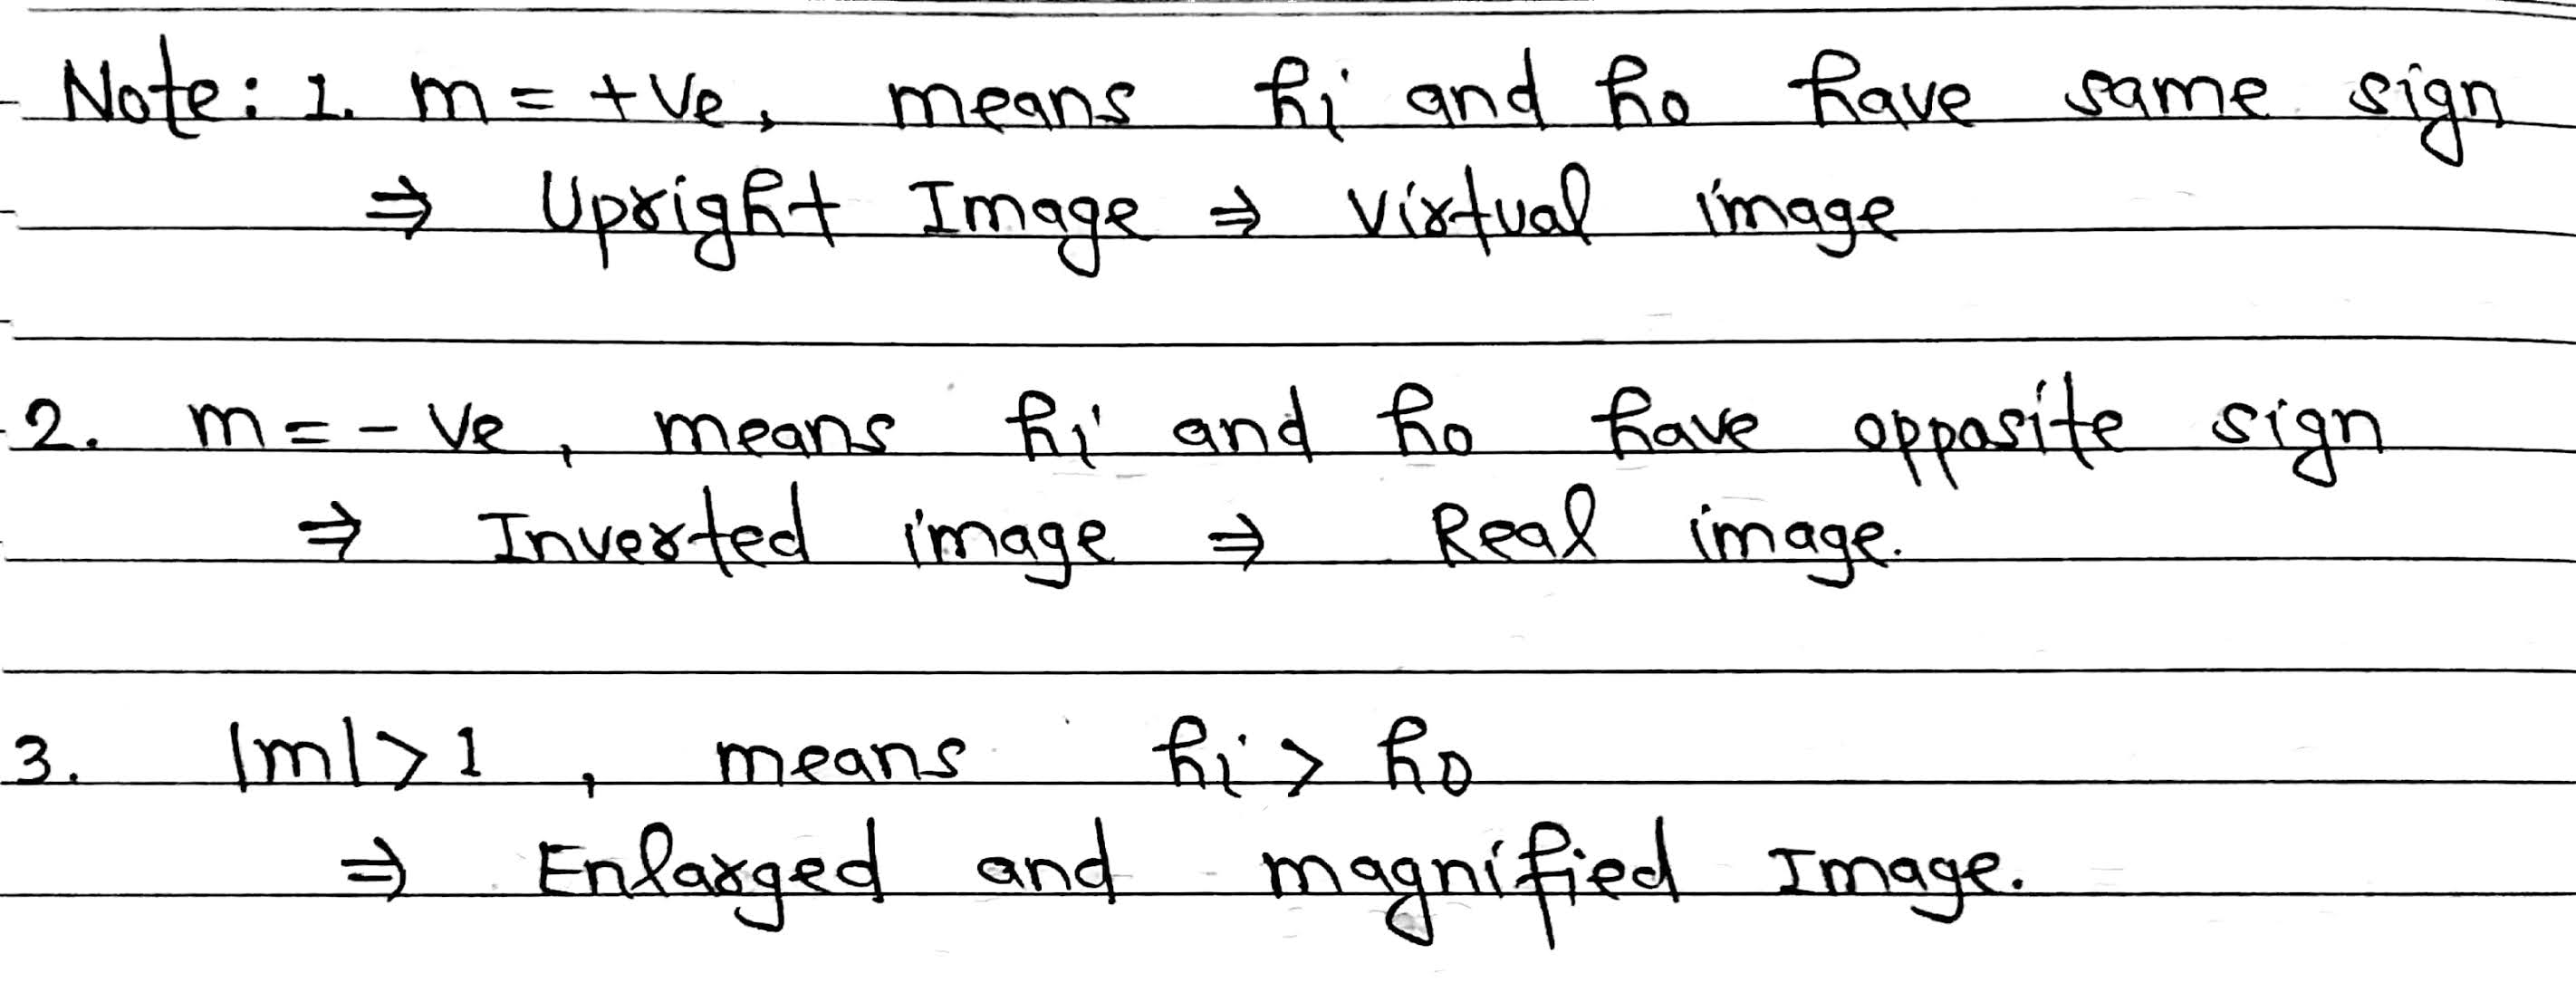 Note: 1. m = +ve, means hi and ho have same sign
⇒ Upright Image ⇒ Virtual image
2. m = - ve, means hi and ho have opposite sign
⇒ Inverted image ⇒ Real image.
3. |m| > 1, means hi > ho
⇒ Enlarged and magnified Image.